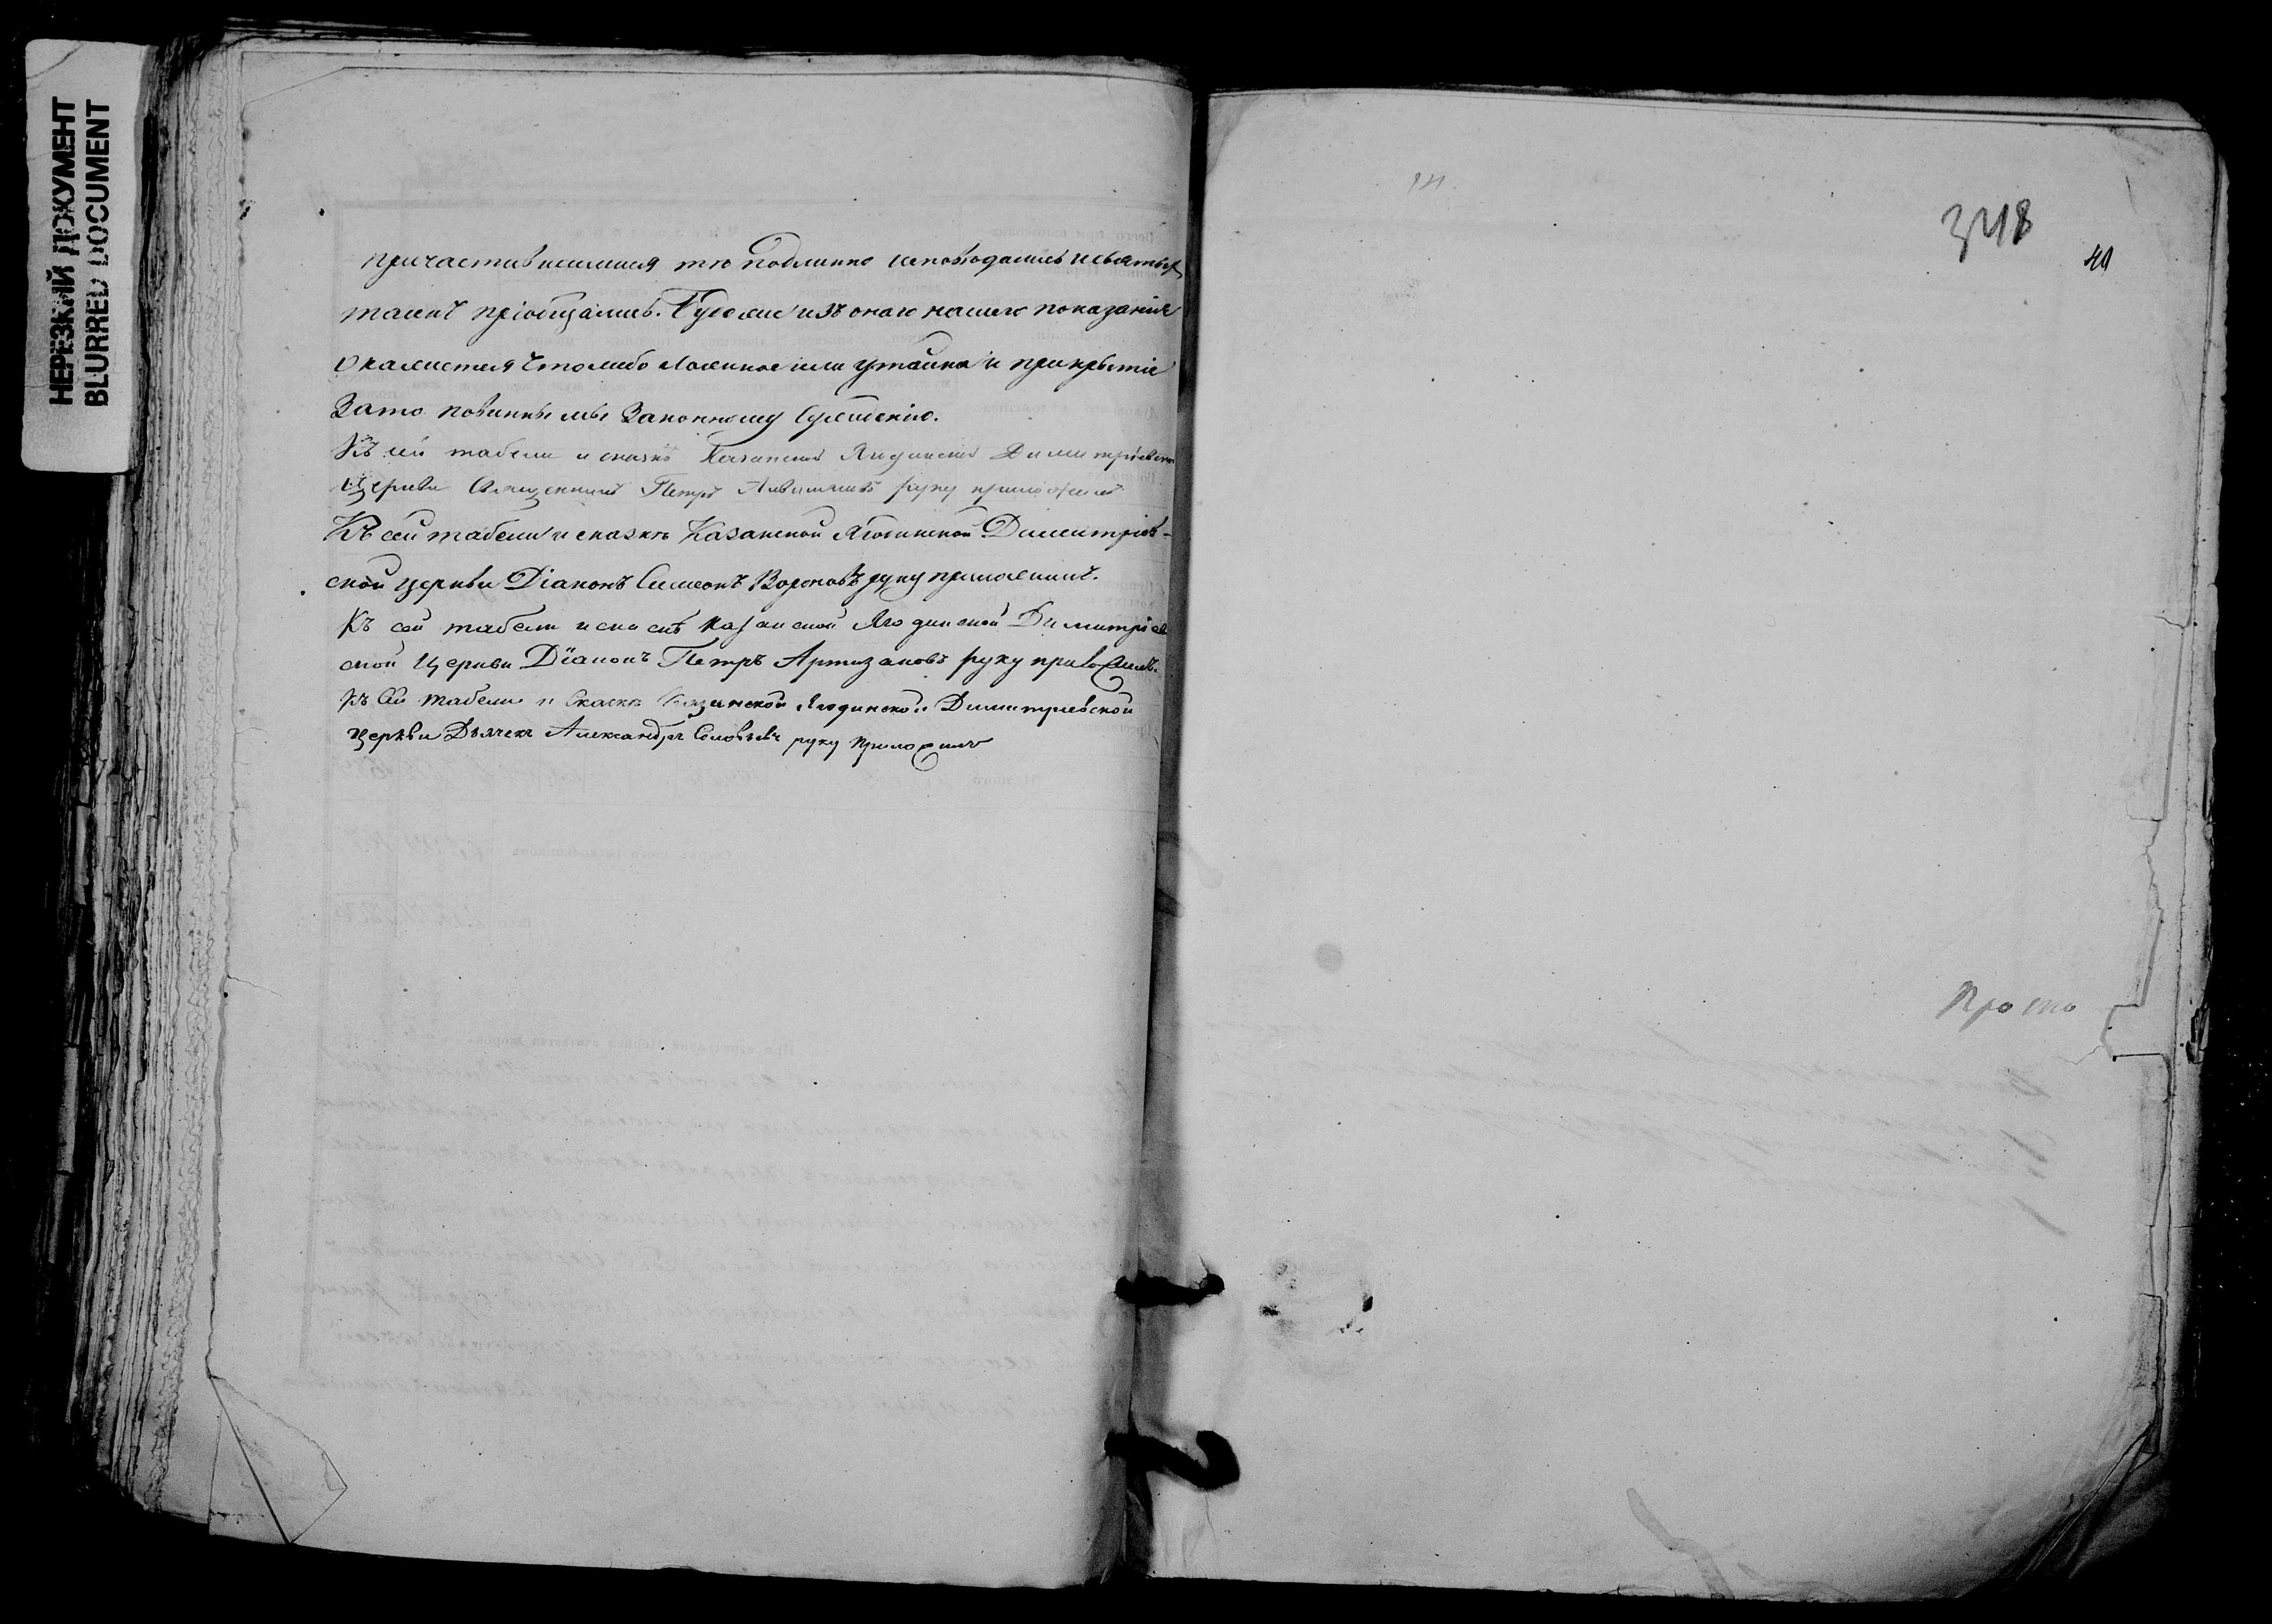 НЕРЕЗКИЙ ДОКУМЕНТ
BLURRED DOCUMENT
причастившимися тѣ подлинно исповѣдались и святыхъ
таинъ пріобщались. Буде же изъ онаго нашего показанія
окажется что либо ложное или утайка и прикрытіе
За то повинны мы Законному сужденію.
Къ сей табели и сказкѣ Казанской Ягодинской Димитріевской
Церкви Священникъ Петръ руку приложилъ
Къ сей табели и сказкѣ Казанской Ягодинской Димитріев-
ской церкви Діаконъ Симеонъ Вороновъ руку приложилъ.
Къ сей табели и сказкѣ Казанской Ягодинской Димитріев
ской Церкви Діаконъ Петръ Артизановъ руку приложилъ.
Къ сей табели и Сказкѣ Казанской Ягодинской Димитриевской
Церкви Дьячекъ Александръ Соловьевъ руку приложилъ
348
40